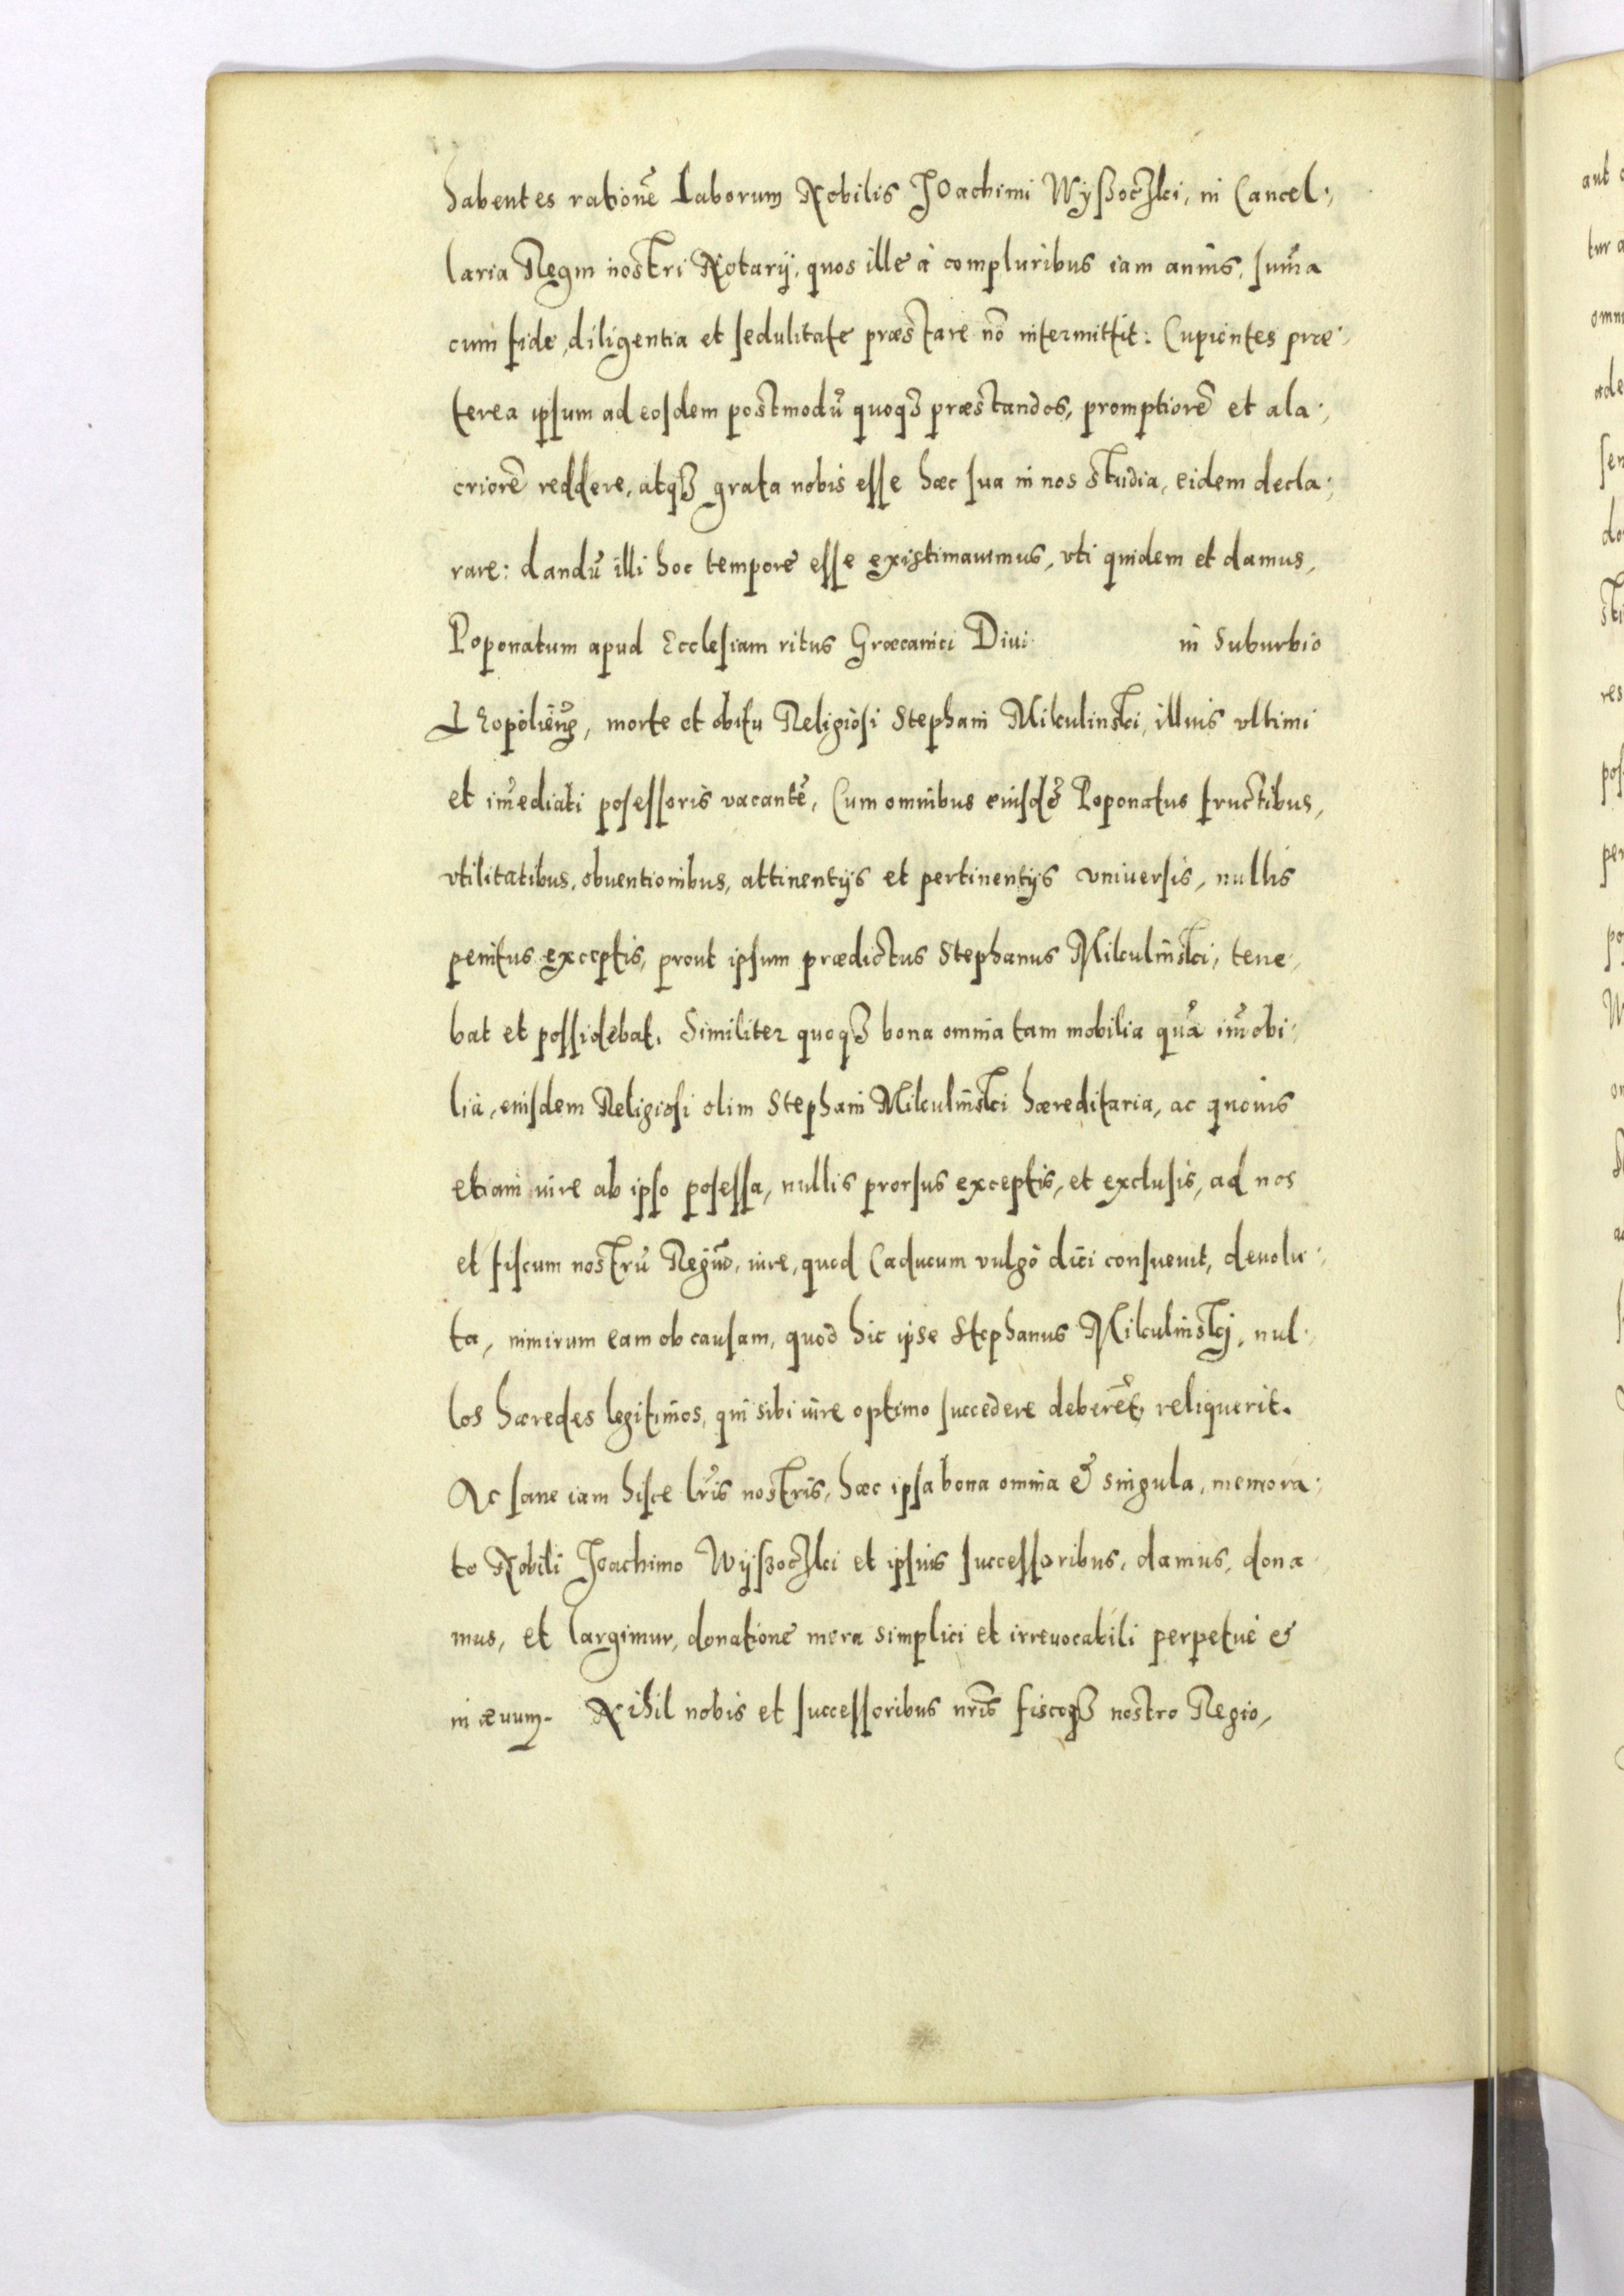 habentes rationē Laborum Nobilis Joachimi Wyßoczki, in Cancel:
laria Regni nostri Notarij, quos ille à compluribus iam annis, sum̃a
cum fide, diligentia et sedulitate præstare nō intermittit: Cupientes præ:
terea ipsum ad eosdem postmodū quoqȝ præstandos, promptiorē et ala:
criorē reddere, atqȝ grata nobis esse hæc sua in nos studia, eidem decla:
rare: dandū illi hoc tempore esse existimauimus, vti quidem et damus,
Poponatum apud Ecclesiam ritus Græcanici Diui in Suburbio
Leopolieñ, morte et obitu Religiosi Stephani Mikulinski, illius vltimi
et im̃ediati posessoris vacantē, Cum omnibus eiusdē Poponatus fructibus,
vtilitatibus, obuentionibus, attinentijs et pertinentijs vniuersis, nullis
penitus exceptis, prout ipsum prædictus Stephanus Mikulinski, tene:
bat et possidebat. Similiter quoqȝ bona omnia tam mobilia quā im̃obi:
lia, eiusdem Religiosi olim Stephani Mikulinski hæreditaria, ac quouis
etiam iure ab ipso posessa, nullis prorsus exceptis, et exclusis, ad nos
et fiscum nostrū Regiū, iure, quod Caducum vulgò dici consueuit, deuolu:
ta, nimirum eam ob causam, quod hic ipse Stephanus Mikulinskj, nul:
los hæredes legitimos, qui sibi iure optimo succedere deberēt, reliquerit.
Ac sane iam hisce lr̃is nostris, hæc ipsa bona omnia & singula, memora:
to Nobili Joachimo Wyßoczki et ipsius successoribus, damus, dona:
mus, et largimur, donatione mera simplici et irreuocabili perpetuè &
in æuum. Nihil nobis et successoribus nr̃is fiscoqȝ nostro Regio,